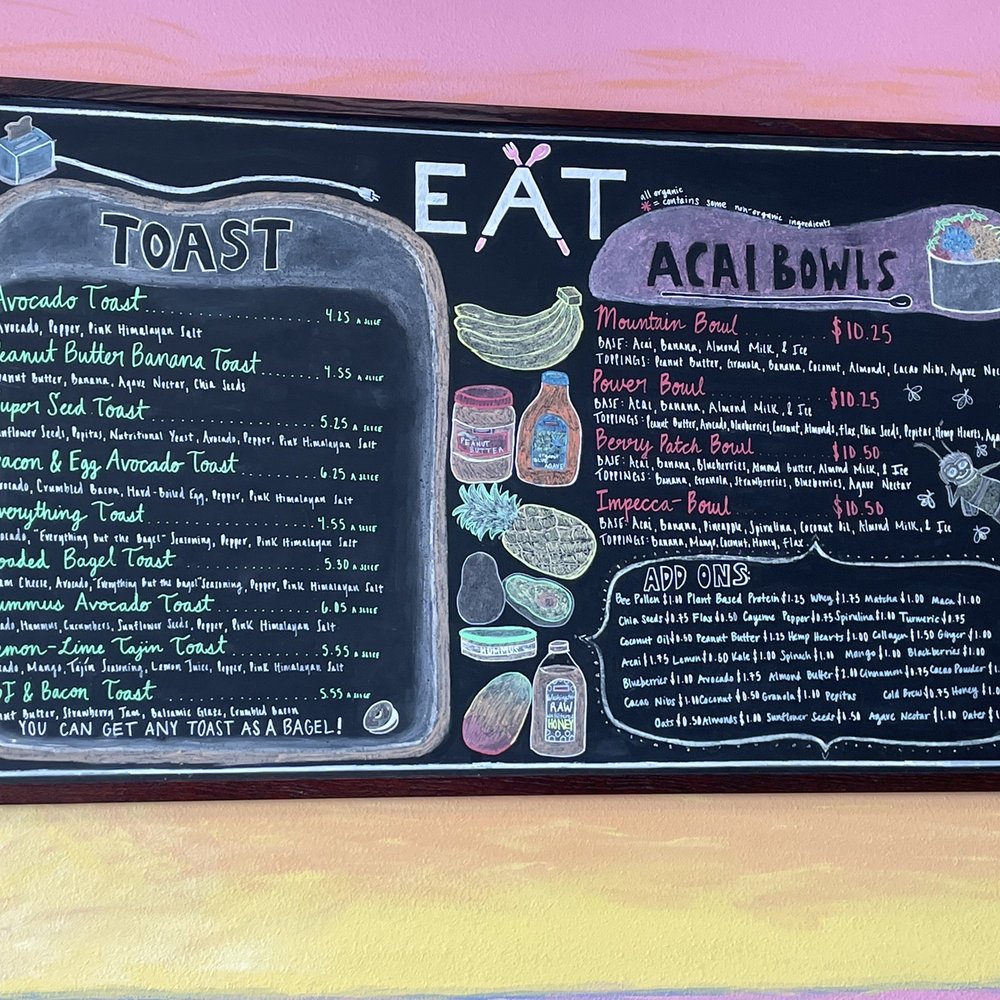 EAT
all organic
* = contains some non-organic ingredients
TOAST
Avocado Toast 4.25 A SLICE
Avocado, Pepper, Pink Himalayan Salt
eanut Butter Banana Toast 4.55 A SLICE
eanut Butter, Banana, Agave Nectar, Chia Seeds
uper Seed Toast 5.25 A SLICE
unflower Seeds, Pepitas, Nutritional Yeast, Avocado, Pepper, Pink Himalayan Salt
acon & Egg Avocado Toast 6.25 A SLICE
vocado, Crumbled Bacon, Hard-Boiled Egg, Pepper, Pink Himalayan Salt
verything Toast 4.55 A SLICE
ocado, "Everything but the Bagel" Seasoning, Pepper, Pink Himalayan Salt
oaded Bagel Toast 5.30 A SLICE
am Cheese, Avocado, "Everything but the Bagel" Seasoning, Pepper, Pink Himalayan Salt
ummus Avocado Toast 6.05 A SLICE
ado, Hummus, Cucumbers, Sunflower Seeds, Pepper, Pink Himalayan Salt
emon-Lime Tajin Toast 5.55 A SLICE
cado, Mango, Tajin Seasoning, Lemon Juice, Pepper, Pink Himalayan Salt
&J & Bacon Toast 5.55 A SLICE
nut Butter, Strawberry Jam, Balsamic Glaze, Crumbled Bacon
YOU CAN GET ANY TOAST AS A BAGEL!
PEANUT
BUTTER
AGAVE
HUMMUS
RAW
HONEY
ACAI BOWLS
Mountain Bowl $10.25
BASE: Acai, Banana, Almond Milk, & Ice
TOPPINGS: Peanut Butter, Granola, Banana, Coconut, Almonds, Cacao Nibs, Agave Nec
Power Bowl $10.25
BASE: Acai, Banana, Almond Milk, & Ice
TOPPINGS: Peanut Butter, Avocado, Blueberries, Coconut, Almonds, Flax, Chia Seeds, Pepitas, Hemp Hearts, Aga
Berry Patch Bowl $10.50
BASE: Acai, Banana, Blueberries, Almond Butter, Almond Milk, & Ice
TOPPINGS: Banana, Granola, Strawberries, Blueberries, Agave Nectar
Impecca-Bowl $10.50
BASE: Acai, Banana, Pineapple, Spirulina, Coconut Oil, Almond Milk, & Ice
TOPPINGS: Banana, Mango, Coconut, Honey, Flax
ADD ONS:
Bee Pollen $1.00 Plant Based Protein $1.25 Whey $1.75 Matcha $1.00 Maca $1.00
Chia Seeds $0.75 Flax $0.50 Cayenne Pepper $0.75 Spirulina $1.00 Turmeric $0.75
Coconut Oil $0.50 Peanut Butter $1.25 Hemp Hearts $1.00 Collagen $1.50 Ginger $1.00
Acai $1.75 Lemon $0.60 Kale $1.00 Spinach $1.00 Mango $1.00 Blackberries $1.00
Blueberries $1.00 Avocado $1.75 Almond Butter $2.00 Cinnamon $0.75 Cacao Powder $
Cacao Nibs $1.00 Coconut $0.50 Granola $1.00 Pepitas Cold Brew $0.75 Honey $1.0
Oats $0.50 Almonds $1.00 Sunflower Seeds $1.50 Agave Nectar $1.00 Dates $1.